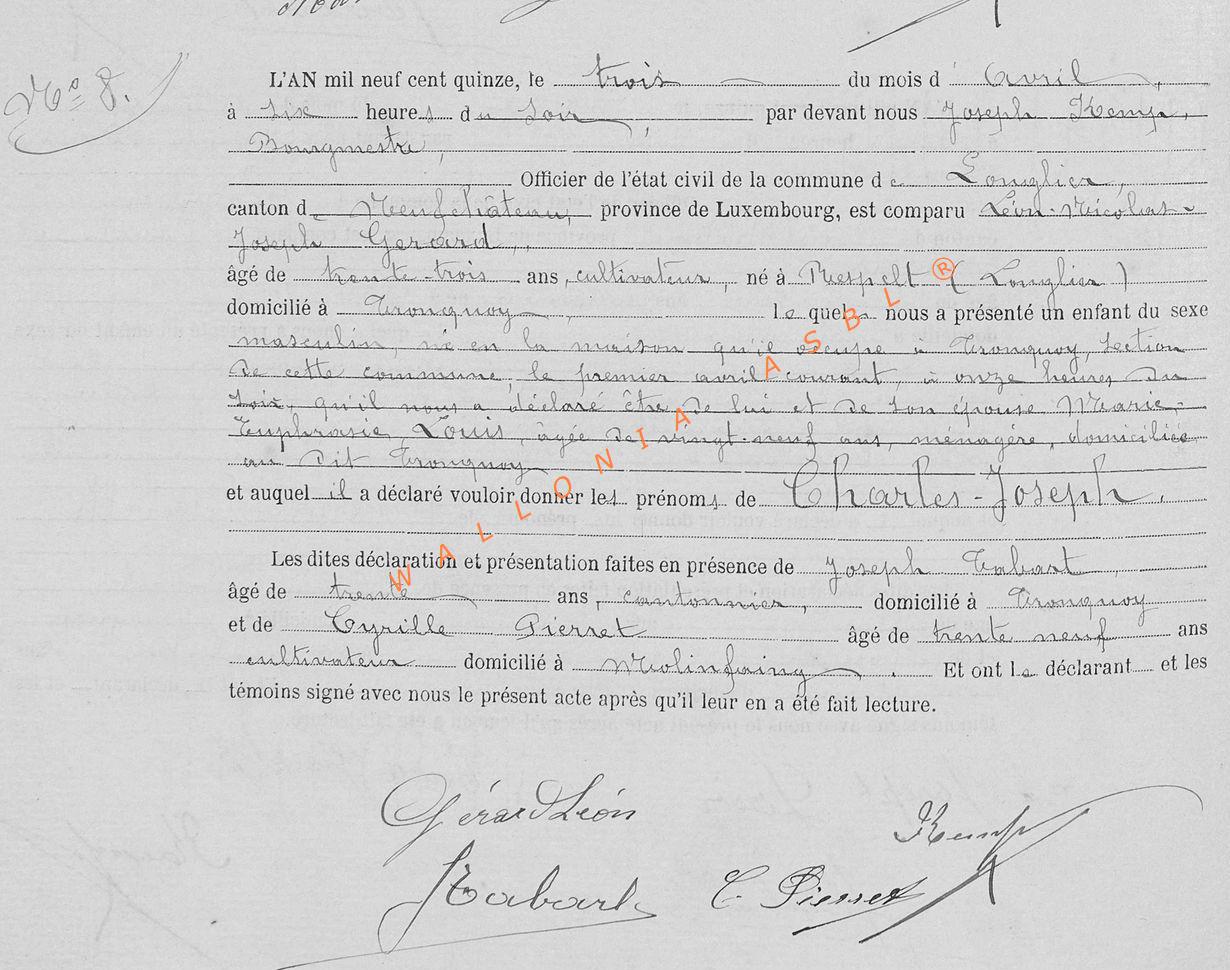 N° 8.
L'AN mil neuf cent quinze, le trois du mois d'avril,
à six heures du soir, par devant nous Joseph Kemp,
Bourgmestre,
Officier de l'état civil de la commune de Longlier,
canton de Neufchâteau, province de Luxembourg, est comparu Léon-Nicolas-
Joseph Gerard,
âgé de trente-trois ans, cultivateur, né à Respelt (Longlier)
domicilié à Tronquoy, lequel nous a présenté un enfant du sexe
masculin, né en la maison qu'il occupe à Tronquoy, section
de cette commune, le premier avril courant, à onze heures du
soir, qu'il nous a déclaré être de lui et de son épouse Marie-
Euphrasie Louis, âgée de vingt-neuf ans, ménagère, domiciliée
au dit Tronquoy
et auquel il a déclaré vouloir donner les prénoms de Charles-Joseph.
Les dites déclaration et présentation faites en présence de Joseph Tabart
âgé de trente ans, cantonnier, domicilié à Tronquoy
et de Cyrille Pierret âgé de trente neuf ans
cultivateur domicilié à Molinfaing. Et ont le déclarant et les
témoins signé avec nous le présent acte après qu'il leur en a été fait lecture.
Gérard Léon
Kemp
J Tabart
C. Pierret
WALLONIA ASBL ®